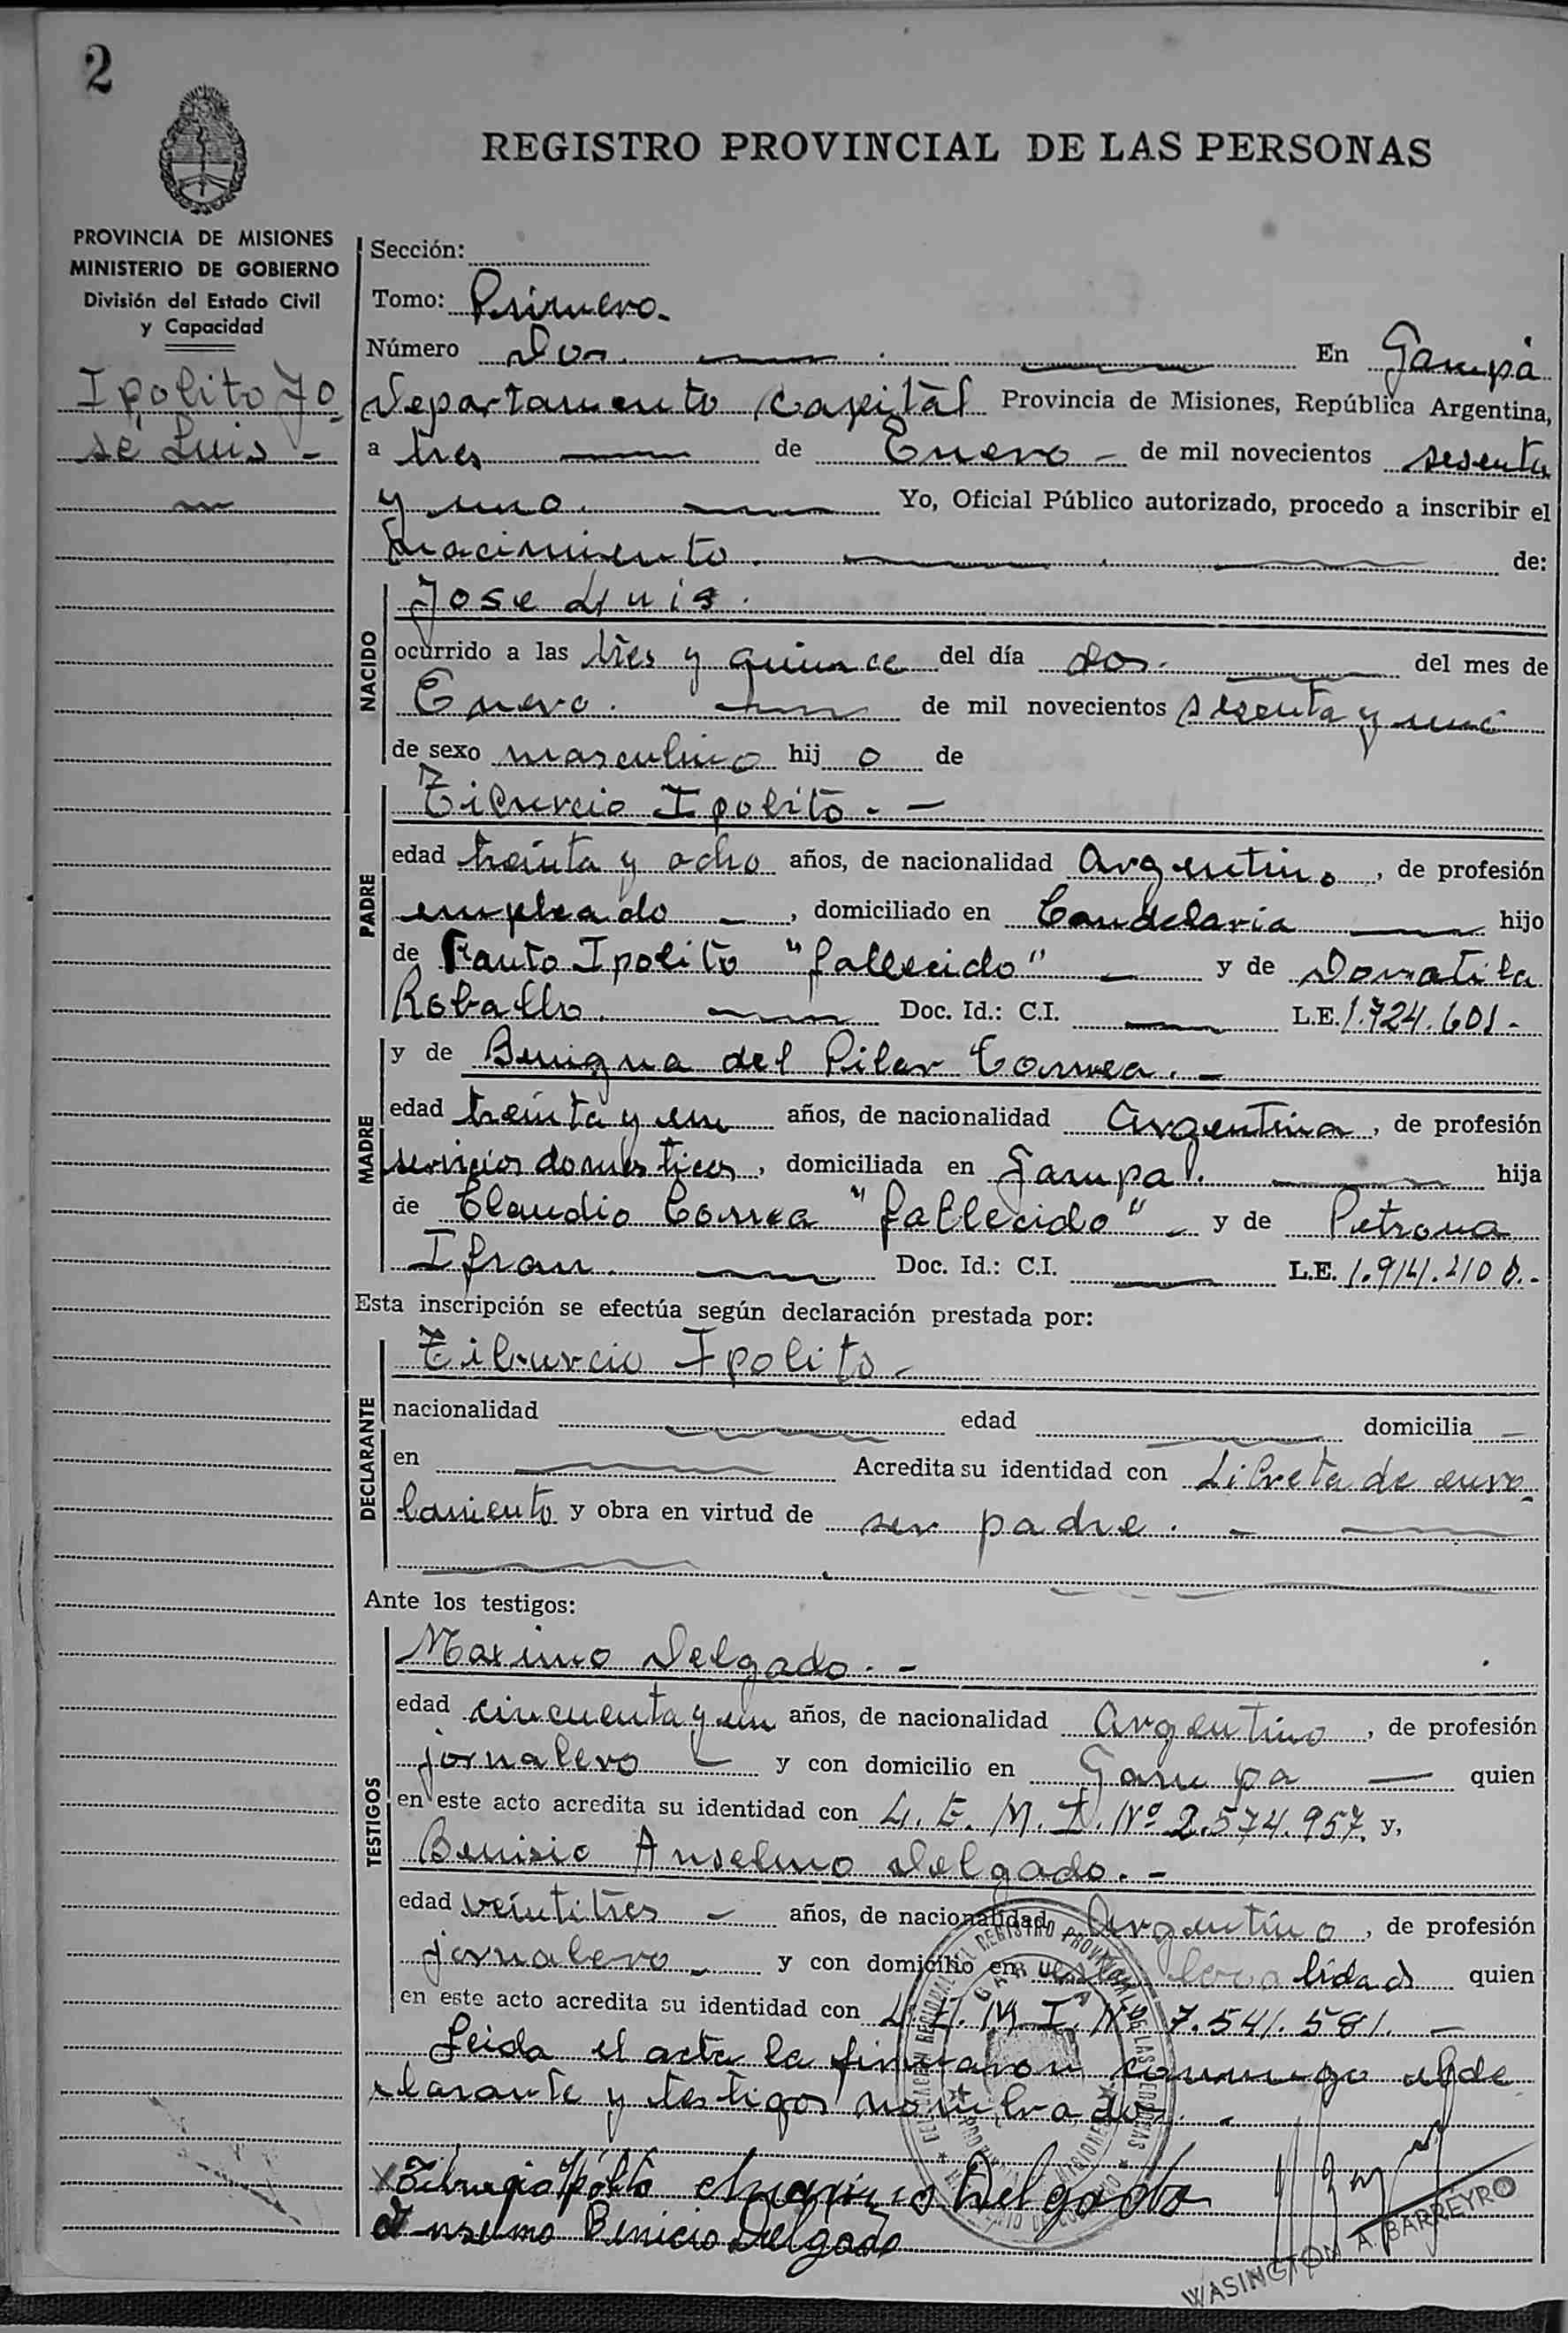 2
REGISTRO PROVINCIAL DE LAS PERSONAS
PROVINCIA DE MISIONES
MINISTERIO DE GOBIERNO
División del Estado Civil
y Capacidad
Ipolito Jo
sé Luis -
Sección:
Tomo: Primero.-
Número Dos. En Garupá
Departamento Capital Provincia de Misiones, República Argentina,
a tres de Enero - de mil novecientos sesenta
y uno. Yo, Oficial Público autorizado, procedo a inscribir el
nacimiento. de:
NACIDO
Jose Luis.
ocurrido a las tres y quince del día dos. del mes de
Enero. de mil novecientos sesenta y uno
de sexo masculino hij o de
PADRE
Tiburcio Ipolito. -
edad treinta y ocho años, de nacionalidad Argentino, de profesión
empleado -, domiciliado en Candelaria hijo
de Fauto Ipolito "fallecido" - y de Domatila
Roballo. Doc. Id.: C.I. L.E. 1.724.601.-
MADRE
y de Benigna del Pilar Correa. -
edad treinta y un años, de nacionalidad Argentina, de profesión
servicios domesticos, domiciliada en Garupa. hija
de Claudio Correa "fallecido" - y de Petrona
Ifran. Doc. Id.: C.I. L.E.
Esta inscripción se efectúa según declaración prestada por:
DECLARANTE
Tiburcio Ipolito -
nacionalidad edad domicilia
en Acredita su identidad con Libreta de enro-
lamiento y obra en virtud de ser padre. -
Ante los testigos:
TESTIGOS
Maximo Delgado. -
edad cincuenta y un años, de nacionalidad Argentino, de profesión
jornalero - y con domicilio en Garupa - quien
en este acto acredita su identidad con L. E. M. I. Nº 2.574.957. y,
Benisio Anselmo Delgado. -
edad veintitres - años, de nacionalidad Argentino, de profesión
jornalero - y con domicilio en esta localidad quien
en este acto acredita su identidad con L. E. M. I. Nº 7.541.581. -
Leida el acta la firmaron conmigo el de
clarante y testigos nombrados. -
Tiburcio Ipolito Maximo Delgado
Anselmo Benicio Delgado
WASINGTON A. BARREYRO